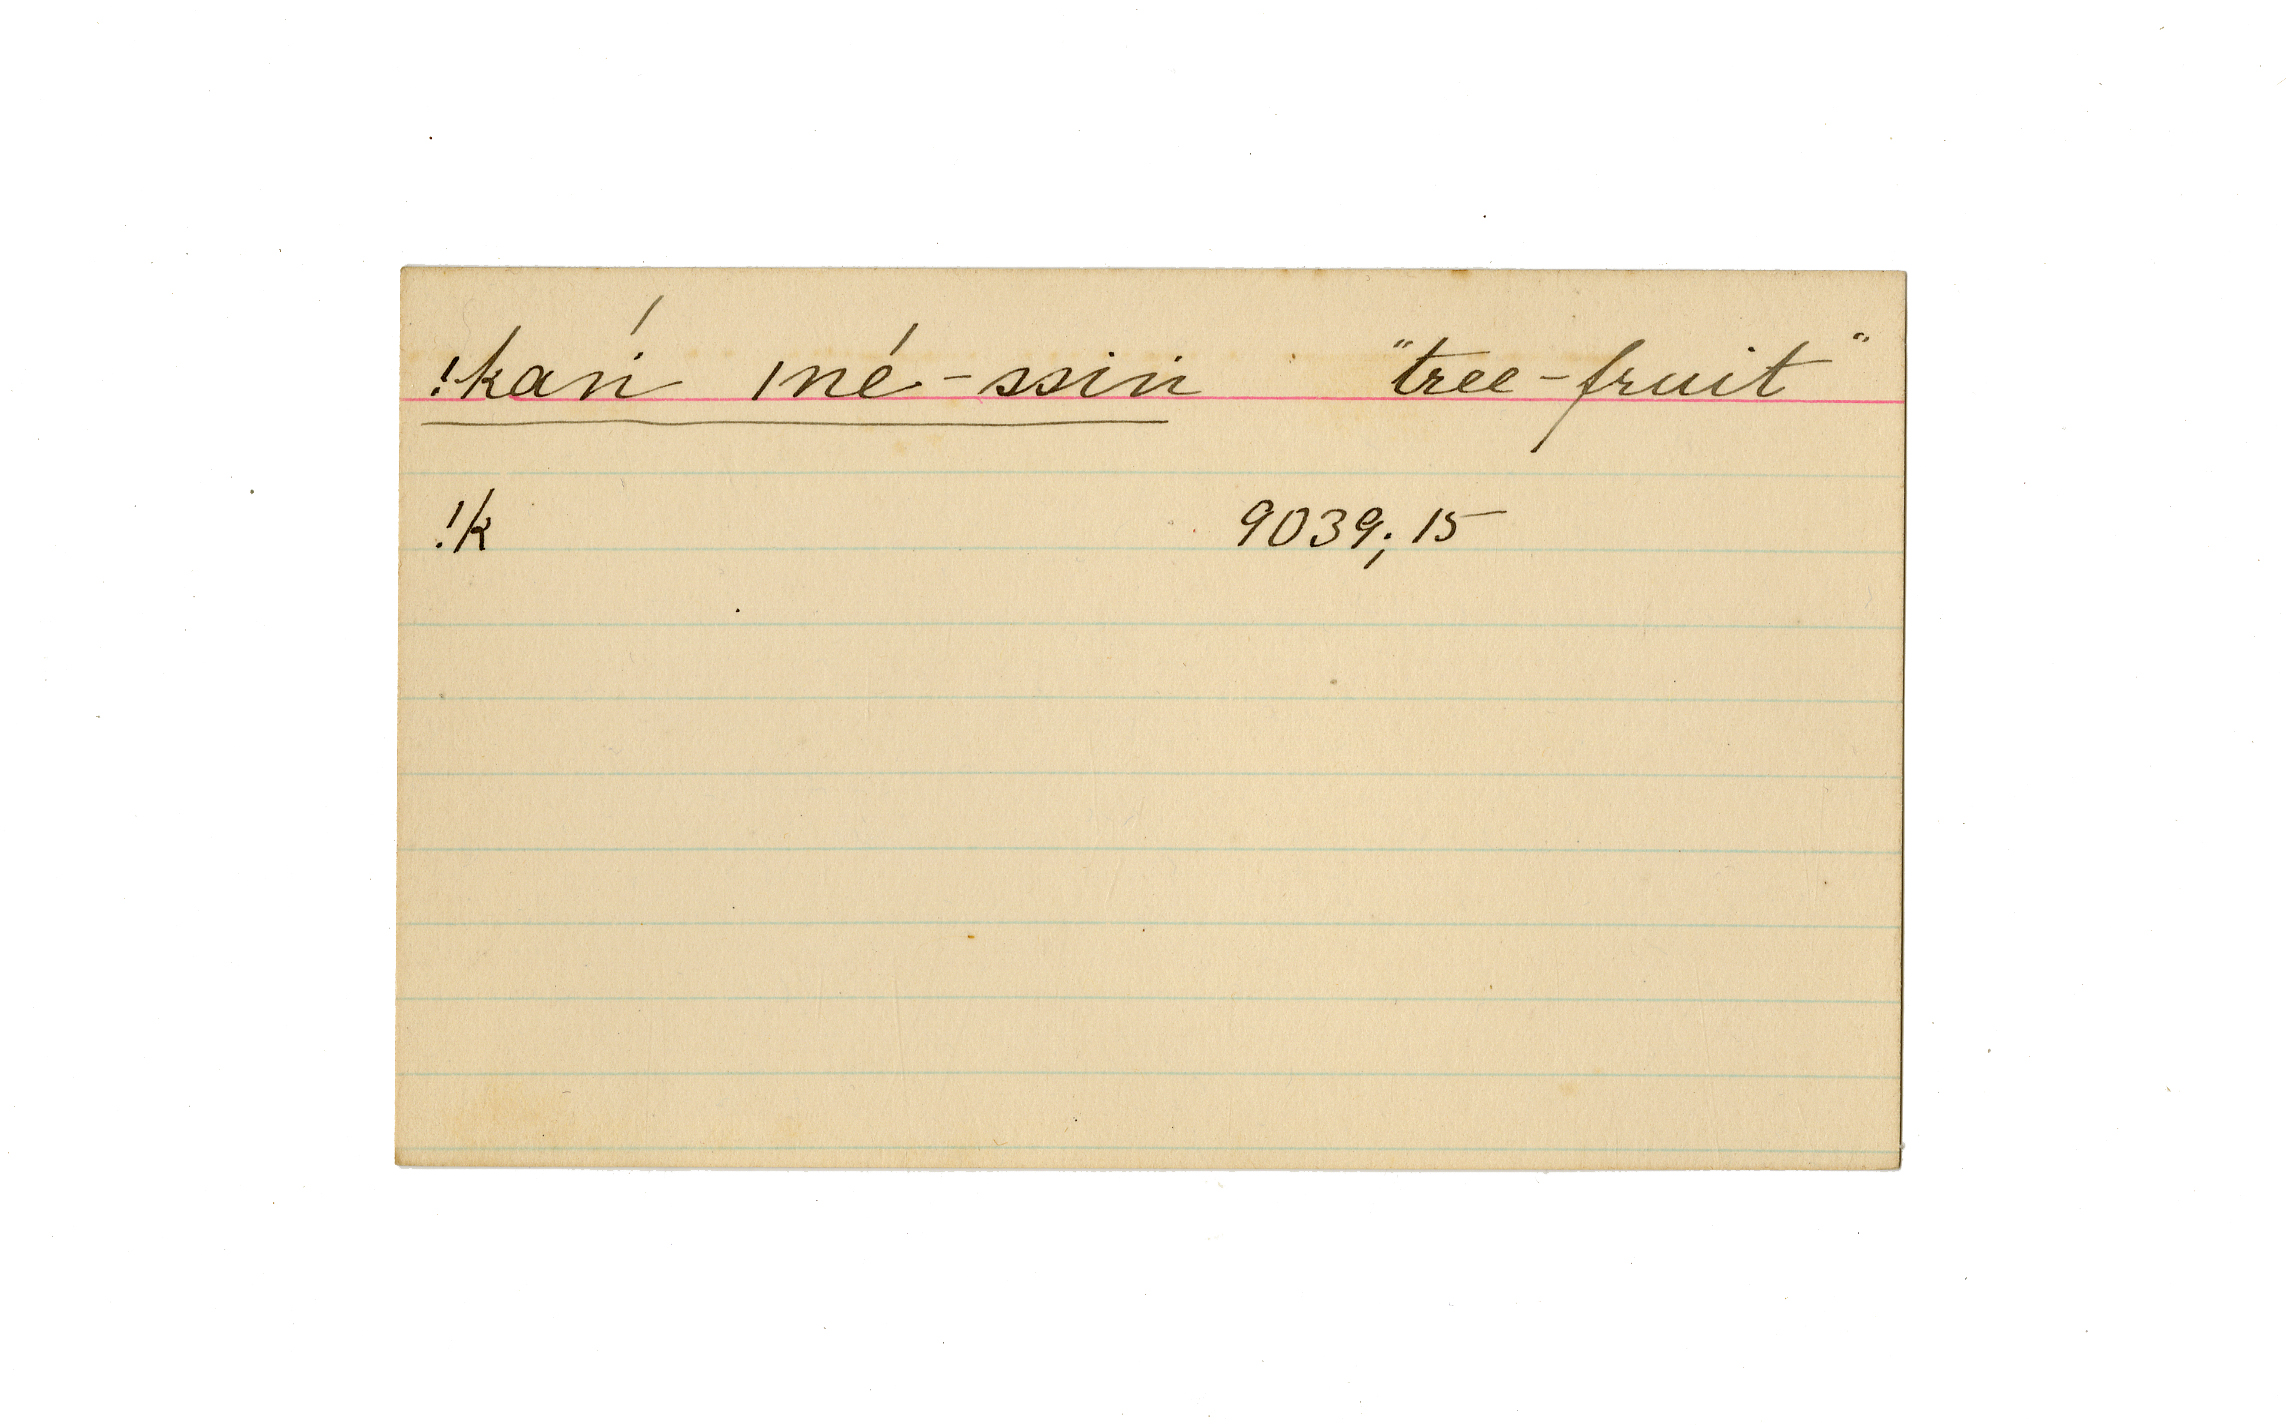 !kań |né-ssin "tree-fruit"
!k 9039; 15